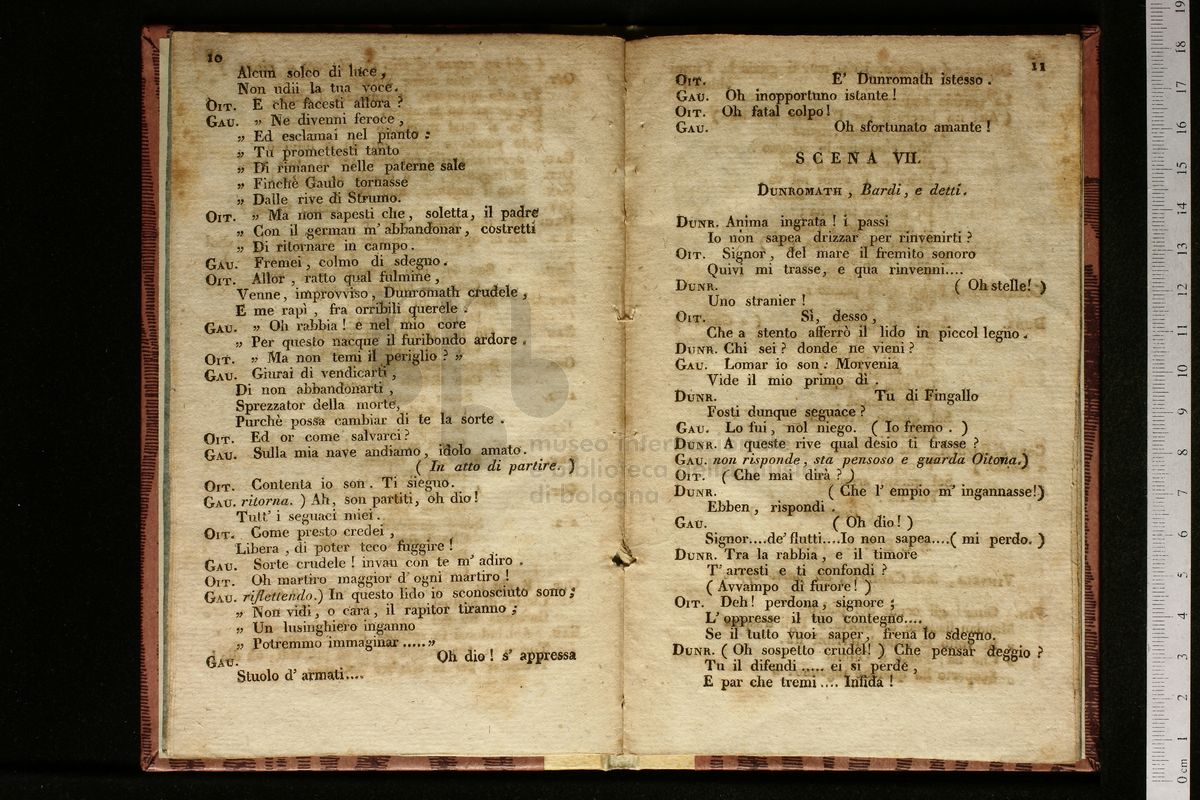 10
Alcun solco di luce,
Non udii la tua voce.
OIT. E che facesti allora ?
GAU. „ Ne divenni feroce,
„ Ed esclamai nel pianto :
„ Tu promettesti tanto
„ Di rimaner nelle paterne sale
„ Finchè Gaulo tornasse
„ Dalle rive di Strumo.
OIT. „ Ma non sapesti che, soletta, il padre
„ Con il german m' abbandonar, costretti
„ Di ritornare in campo.
GAU. Fremei, colmo di sdegno.
OIT. Allor, ratto qual fulmine,
Venne, improvviso, Dunromath crudele,
E me rapì, fra orribili querele.
GAU. „ Oh rabbia ! e nel mio core
„ Per questo nacque il furibondo ardore.
OIT. „ Ma non temi il periglio ? „
GAU. Giurai di vendicarti,
Di non abbandonarti,
Sprezzator della morte,
Purchè possa cambiar di te la sorte.
OIT. Ed or come salvarci ?
GAU. Sulla mia nave andiamo, idolo amato.
( In atto di partire. )
OIT. Contenta io son. Ti sieguo.
GAU. ritorna. ) Ah, son partiti, oh dio !
Tutt' i seguaci miei.
OIT. Come presto credei,
Libera, di poter teco fuggire !
GAU. Sorte crudele ! invan con te m' adiro.
OIT. Oh martiro maggior d' ogni martiro !
GAU. riflettendo.) In questo lido io sconosciuto sono ;
„ Non vidi, o cara, il rapitor tiranno ;
„ Un lusinghiero inganno
„ Potremmo immaginar ..... „
GAU. Oh dio ! s' appressa
Stuolo d' armati....
11
OIT. E' Dunromath istesso.
GAU. Oh inopportuno istante !
OIT. Oh fatal colpo !
GAU. Oh sfortunato amante !
SCENA VII.
DUNROMATH, Bardi, e detti.
DUNR. Anima ingrata ! i passi
Io non sapea drizzar per rinvenirti ?
OIT. Signor, del mare il fremito sonoro
Quivi mi trasse, e qua rinvenni....
DUNR. ( Oh stelle! )
Uno stranier !
OIT. Sì, desso,
Che a stento afferrò il lido in piccol legno.
DUNR. Chi sei ? donde ne vieni ?
GAU. Lomar io son : Morvenia
Vide il mio primo dì.
DUNR. Tu di Fingallo
Fosti dunque seguace ?
GAU. Lo fui, nol niego. ( Io fremo. )
DUNR. A queste rive qual desio ti trasse ?
GAU. non risponde, sta pensoso e guarda Oitona.)
OIT. ( Che mai dirà ? )
DUNR. ( Che l' empio m' ingannasse!)
Ebben, rispondi.
GAU. ( Oh dio! )
Signor....de' flutti....Io non sapea....( mi perdo. )
DUNR. Tra la rabbia, e il timore
T' arresti e ti confondi ?
( Avvampo di furore! )
OIT. Deh! perdona, signore ;
L' oppresse il tuo contegno....
Se il tutto vuoi saper, frena lo sdegno.
DUNR. ( Oh sospetto crudel! ) Che pensar deggio ?
Tu il difendi ..... ei si perde,
E par che tremi.... Infida !